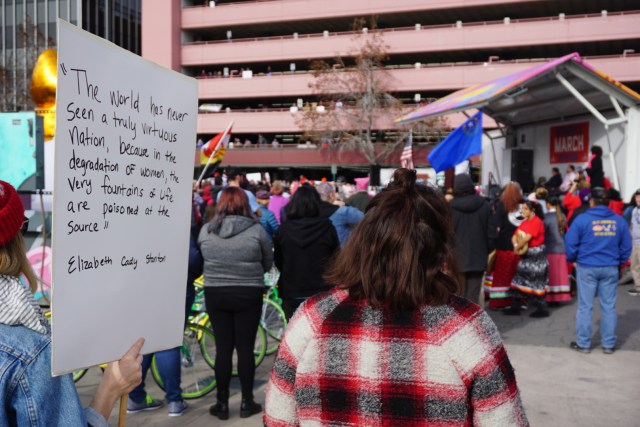 "The World has never
seen a truly virtuous
nation, because in the
degradation of women, the
very fountains of life
are poisoned at the
source"
Elizabeth Cady Stanton
MARCH